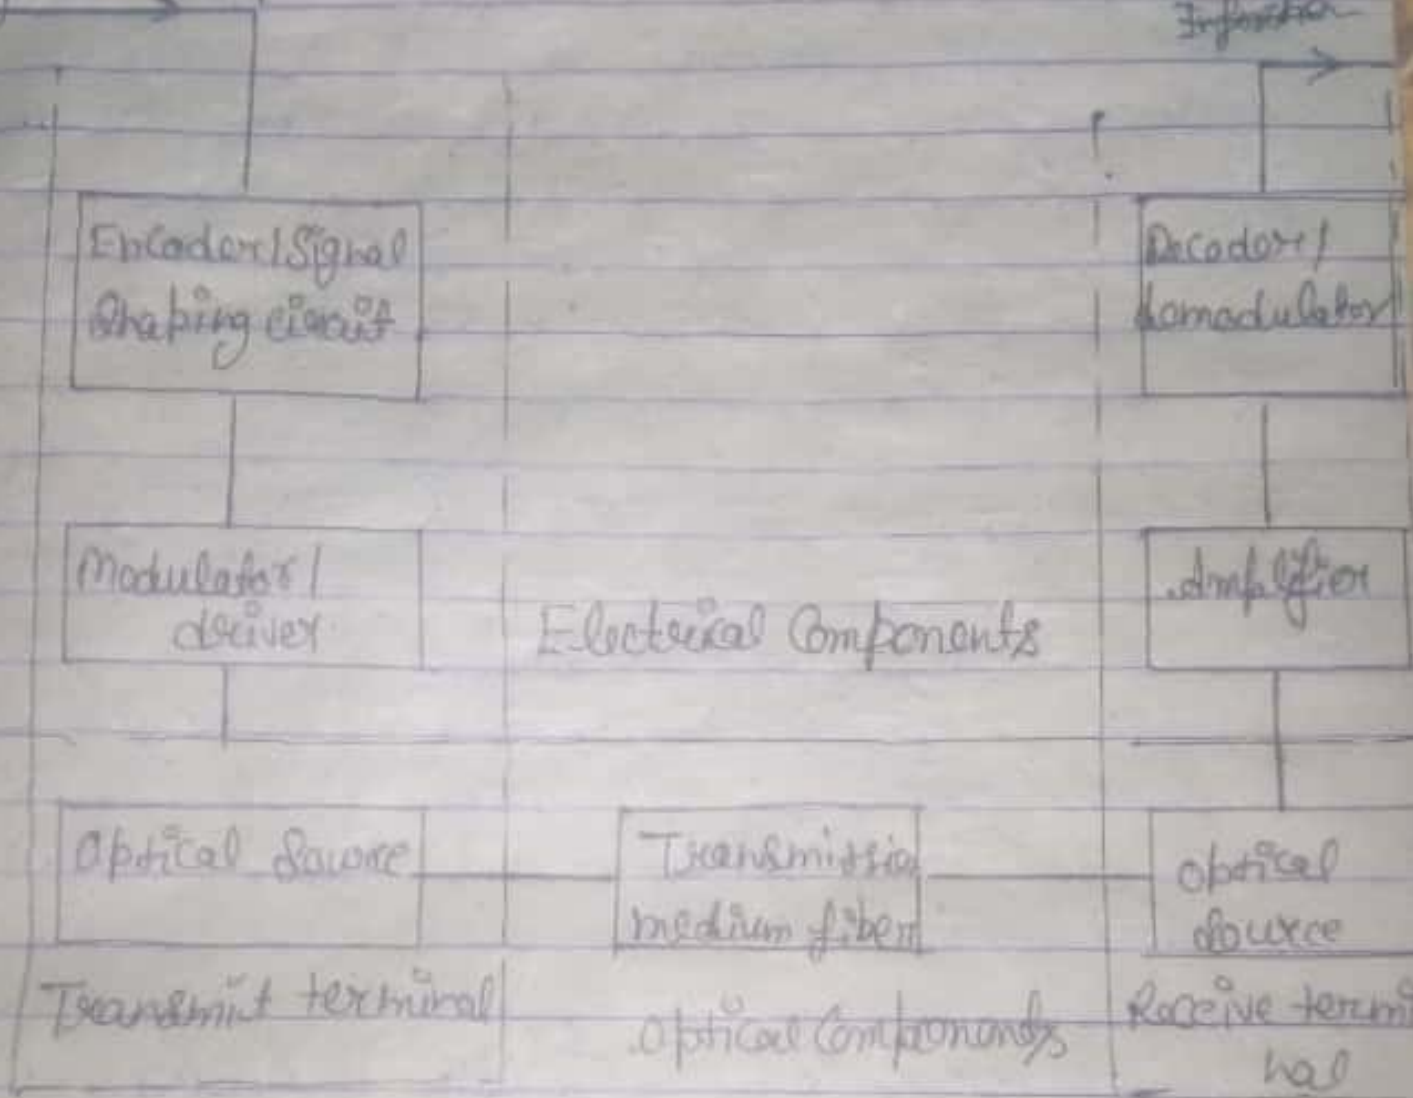 Information
Encoder/Signal
Shaping circuit
Decoder/
demodulator
Modulator/
driver
Electrical Components
Amplifier
Optical Source
Transmission
medium fiber
Optical
Source
Transmit terminal
Optical Components
Receive termi
nal